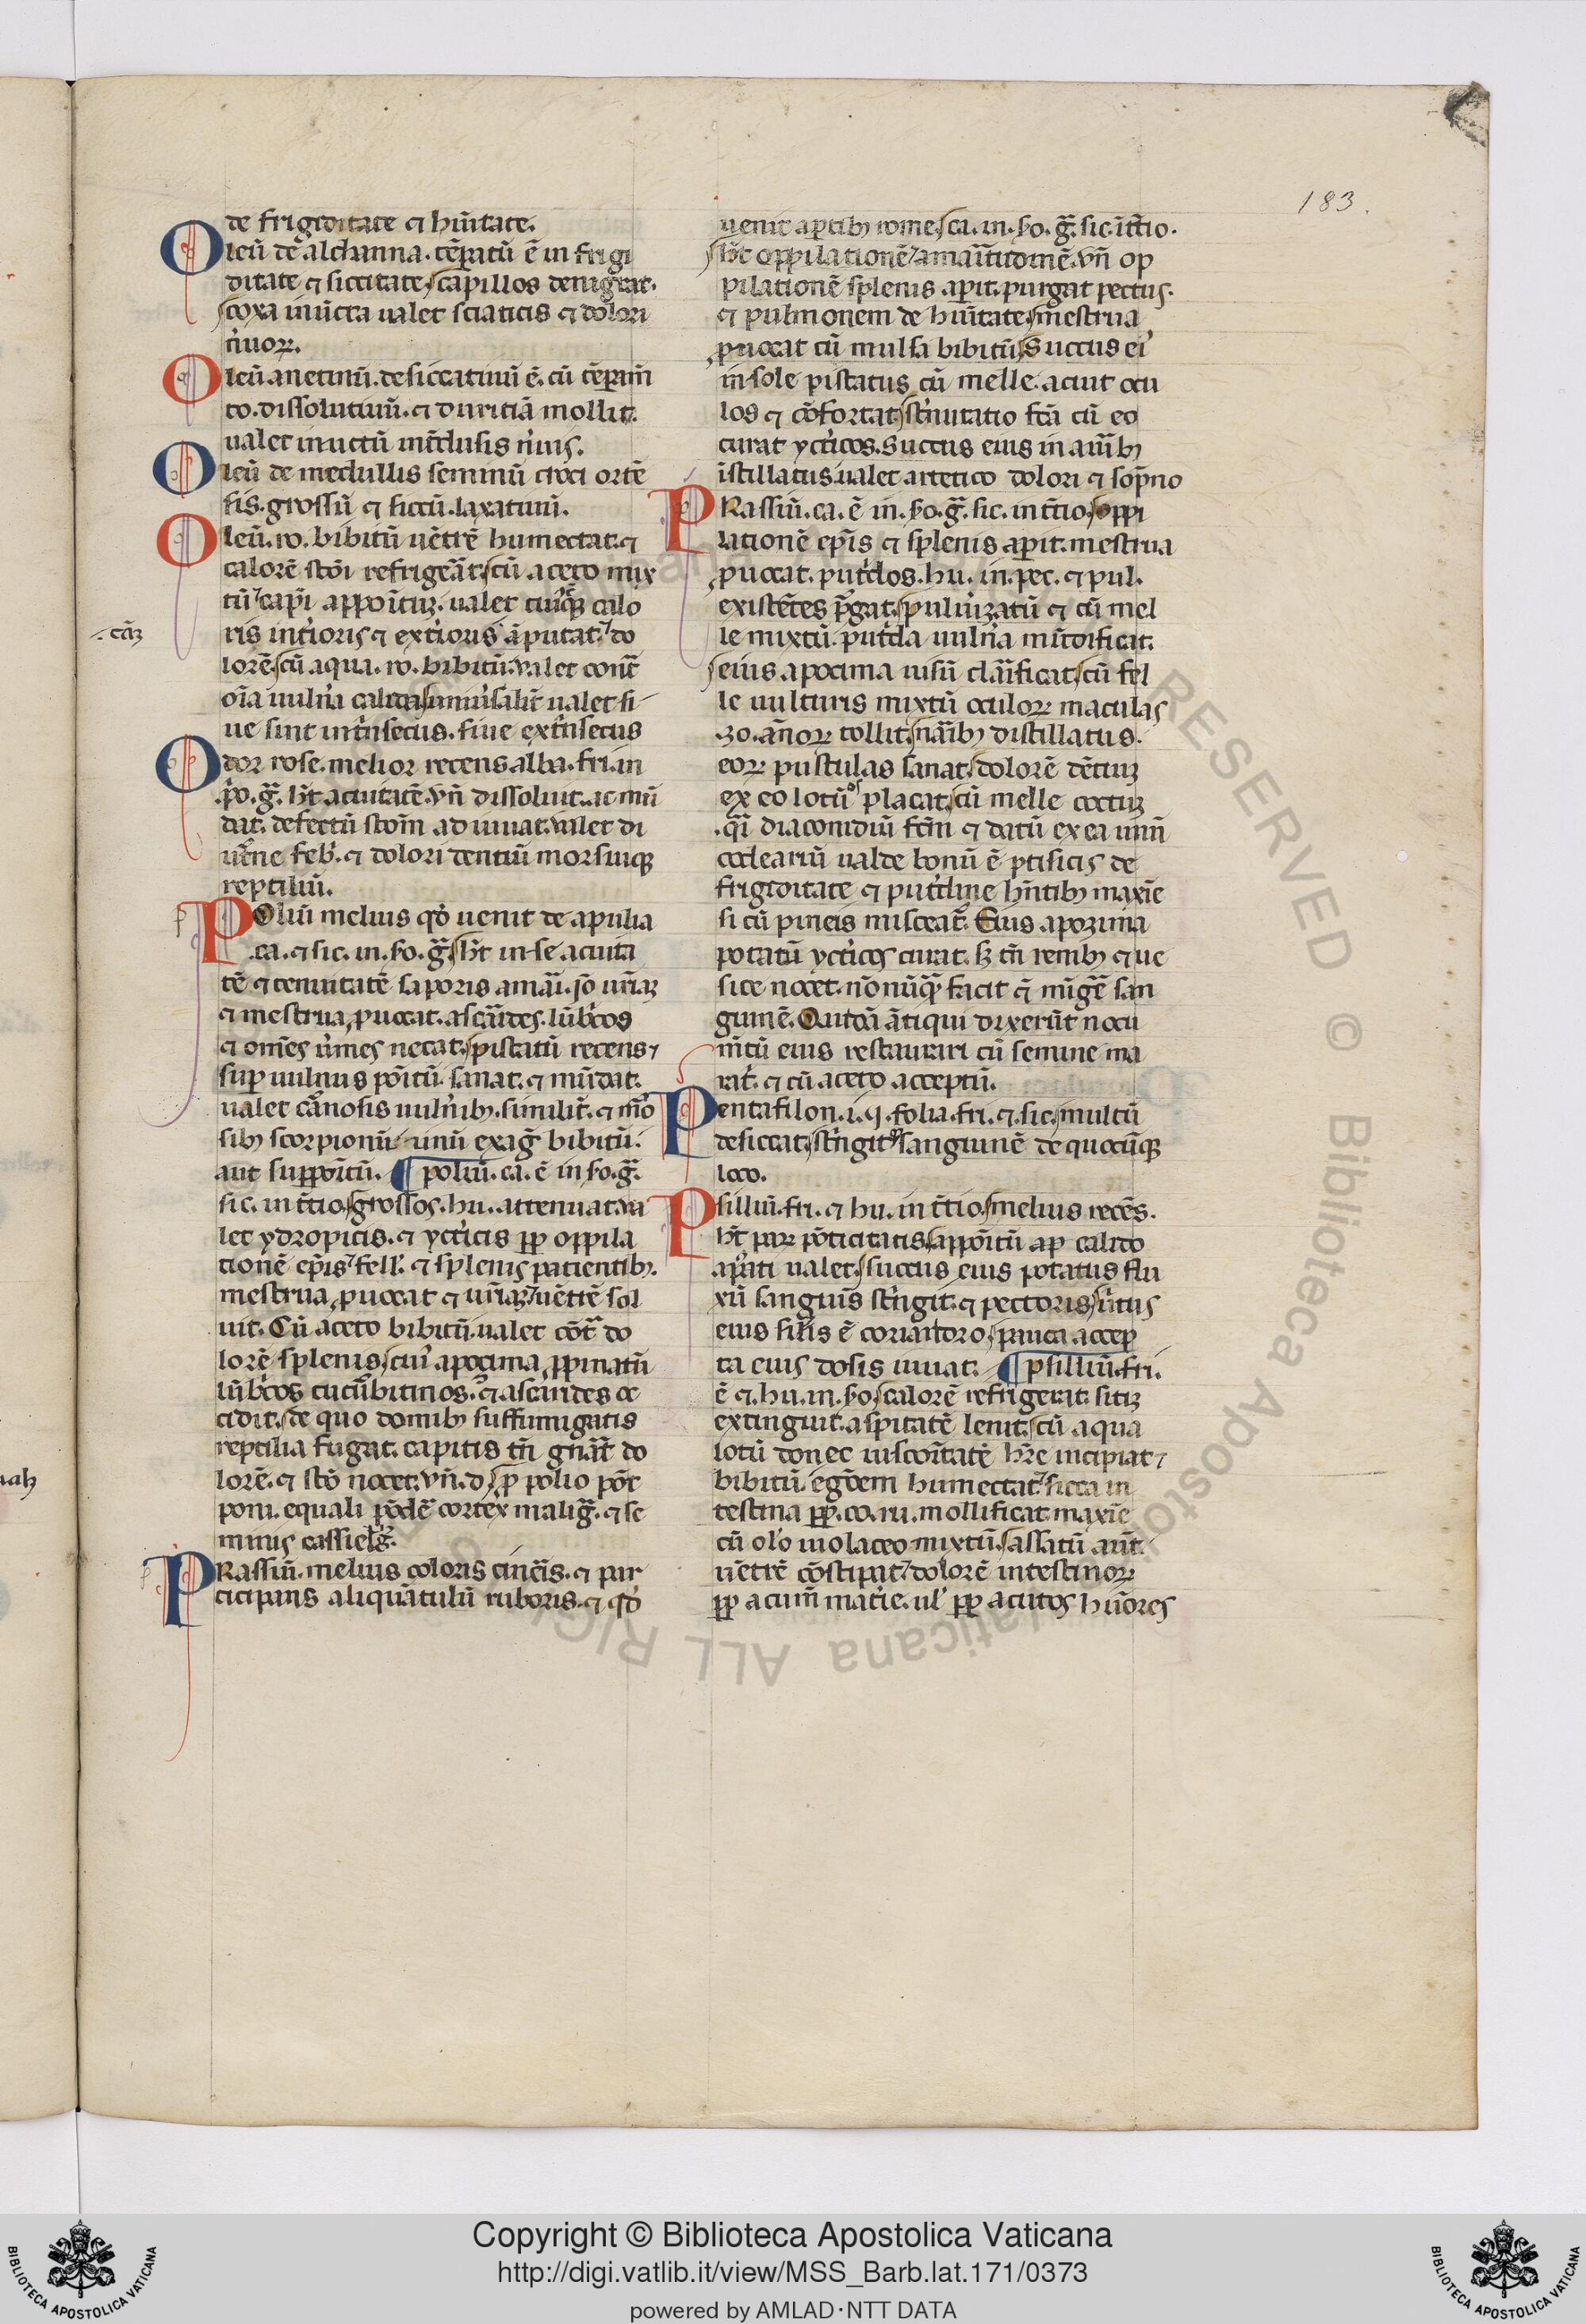 183.
de frigiditate ⁊ hūitate.
Oleū de alchanna. tēꝑatū ē in frigi
ditate ⁊ siccitate. capillos denigrat.
coxa inūcta ualet sciaticis ⁊ dolori
ńuoꝝ.
Oleū anetinū. desiccatiuū ē. cū tēꝑam̄
to. dissolutiuū. ⁊ duritiā mollit.
ualet inūctū
Oleū de medullis seminū croci ortē
sis. grossū ⁊ siccū. laxatiuū.
Oleū. ro. bibitū uētrē humectat. ⁊
calorē stōi refrigerat. cū aceto mix
tū ⁊ capiti
ris intioris ⁊ extioris āputat ⁊ do
.cāꝫ
lorē. cū aqua. ro. bibitū. ualet cont̄
oīa uuln̄a calida. uniūsalit̄ ualet si
ue sint int̄nsecus. siue ext̄nsecus
Odor rose. melior recens alba. fri. in
p̊o. g̃. hꝫ acuitatē. vn̄ dissoluit. ac mū
dat. defectū stom̄ ad iuuat. ualet di
feb̄. ⁊ dolori dentiū morsuiqꝫ
reptiliū.
Poliū melius qđ uenit de apulia
.ca. ⁊ sic. in. so. g̃. hꝫ in se acuita
tē ⁊ tenuitatē saporis amari. iō uīaꝫ
⁊ mestrua ꝓuocat. ascarides. lūbcos
⁊ om̄es ūmes necat. pistatū recens ⁊
suꝑ uulnus poītū sanat. ⁊ mūdat.
ualet cānosis uuln̄ibꝫ. similit̄. ⁊ m̄o
sibꝫ scorpionū. unū exag̃ bibitū.
aut suppoītū. ¶ poliū. ca. ē in so. g̃.
sic. in t̄tio. grossos. hu. attenuat. ua
let ydropicis. ⁊ yctīcis ꝓp̄ oppila
tionē epīs ⁊ fell'. ⁊ splenis patientibꝫ.
mestrua ꝓuocat ⁊ uīaꝫ ⁊ uētrē sol
uit. Cū aceto bibitū. ualet cōt̄ do
lorē splenis. cui' apocima ꝓpinatū
lūbcos cucūbitinos. ⁊ ascarides oc
cidit. de quo domibꝫ suffumigatis
reptilia fugat. capitis tn̄ gn̄at do
lorē. ⁊ stō nocet. vn̄. d. ꝓ polio pōt
poni. equali pōdē cortex malig̃. ⁊ se
minis cassie
Prassiū. melius coloris cineris. ⁊ par
ticipans aliquātulū ruboris. ⁊ qđ
uenit a ꝑtibꝫ rome. ca. in. so. g̃. sic. ī t̄tio.
hꝫ oppilationē ⁊ amaritudinē. vn̄ op
pilationē splenis aꝑit. purgat pectus.
⁊ pulmonem de hūitate. mestrua
ꝓuocat cū mulsa bibitū. Succus ei'
in sole pistatus cū melle. acuit ocu
los ⁊ cōfortat. st̄nutatio fcā cū eo
curat yctīcos. Succus eius in auribꝫ
īstillatus. ualet artetico dolori ⁊
Prassiū. ca. ē in. so. g̃. sic. in t̄tio. oppi
lationē epīs ⁊ splenis aꝑit. mestrua
ꝓuocat. put̄dos. hu. in. pec. ⁊ pul.
existētes p̄gat. puluīzatū ⁊ cū mel
le mixtū. put̄da uuln̄a mūdificat.
eius apocima uisū clarificat. cū fel
le uulturis mixtū oculoꝝ maculas
.30. ānoꝝ tollit. narībꝫ distillatus.
eoꝝ pustulas sanat. dolorē dētiuꝫ
ex eo lotū placat. cū melle coctuꝫ
.qi diaconidiū fcm̄ ⁊ datū ex ea unū
coclearīū ualde bonū ē ptisicis de
frigiditate ⁊ hn̄tibꝫ maxīe
si cū pineis misceat̄. Eius apozima
potatū yctīcos curat. sꝫ tn̄ renibꝫ ⁊ ue
sice nocet. nō nūqm̄ facit ⁊ mīgē san
guinē. Quidā ātiqui dixerūt nocu
mtū eius restaurari cū semine ma
rat̄. ⁊ cū aceto acceptū.
Pentafilon. i. q. folia. fri. ⁊. sic. multū
desiccat. st̄ngit ⁊ sanguinē de quocūqꝫ
loco.
Psilliū. fri. ⁊ hu. in t̄tio. melius recēs.
hꝫ paꝝ pōticitatis. appoītū ap̄ calido
ualet. succus eius potatus flu
xū sanguīs st̄ngit. ⁊ pectoris.
eius sīlis ē coriandro. pauca accep
ta eius dosis iuuat. ¶ psilliū. fri.
ē ⁊. hu. in. so. calorē refrigerat. sitiꝫ
extinguit. aspitatē lenit. cū aqua
lotū donec uiscositatē hr̄e incipiat ⁊
bibitū humectat ⁊ sicca in
testina ꝓp̄. co. ru. mollificat. maxīe
cū olo uiolaceo mixtū. assatū aut̄.
uētrē cōstipat ⁊ dolorē intestinoꝝ
ꝓp̄ acum̄ matie. ul' ꝓp̄ acutos hūores
Copyright © Biblioteca Apostolica Vaticana
http://digi.vatlib.it/view/MSS_Barb.lat.171/0373
powered by AMLAD·NTT DATA
BIBLIOTECA APOSTOLICA VATICANA
BIBLIOTECA APOSTOLICA VATICANA